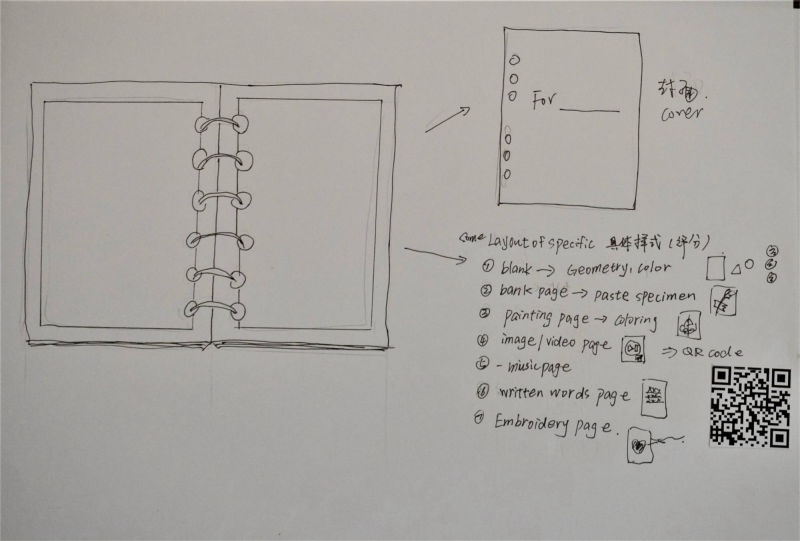 For
封面.
cover
some Layout of specific 具体样式 (部分)
① blank → Geometry, color
② bank page → paste specimen
③ painting page → coloring
④ image/video page ⇒ QR code
⑤ - music page
⑥ written words page
⑦ Embroidery page.